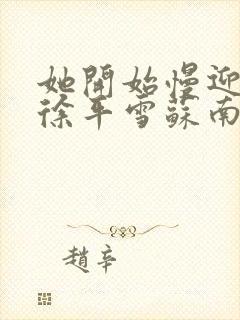 她開始慢迎
徐平雪蘇南
趙辛